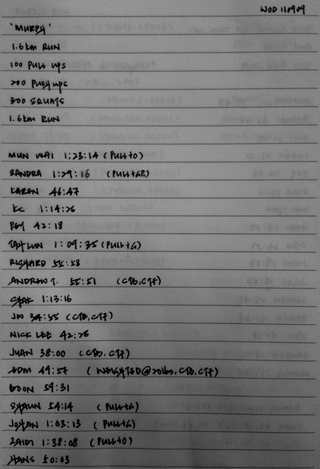 WOD 110909
"MURPH"
1.6km RUN
100 PULL UPS
200 PUSH UPS
300 SQUATS
1.6km RUN
MUN WAI 1:23:14 (PULL+O)
SANDRA 1:29:16
KAREN 46:47
KC 1:14:26
42:18
1:09:35 (PULL+G)
RICHARD 55:58
ANDREW T. 55:51 (CTB, CTF)
1:13:16
JW 34:55 (CTB, CTF)
NICK LEE 42:26
JUAN 38:00 (CTB, CTF)
49:57 (WEIGHTED@20lbs, CTB, CTF)
BOON 59:31
SHAUN 54:14 (PULL+G)
1:03:13 (PULL+G)
SAIDI 1:38:08 (PULL+O)
HANS 50:03